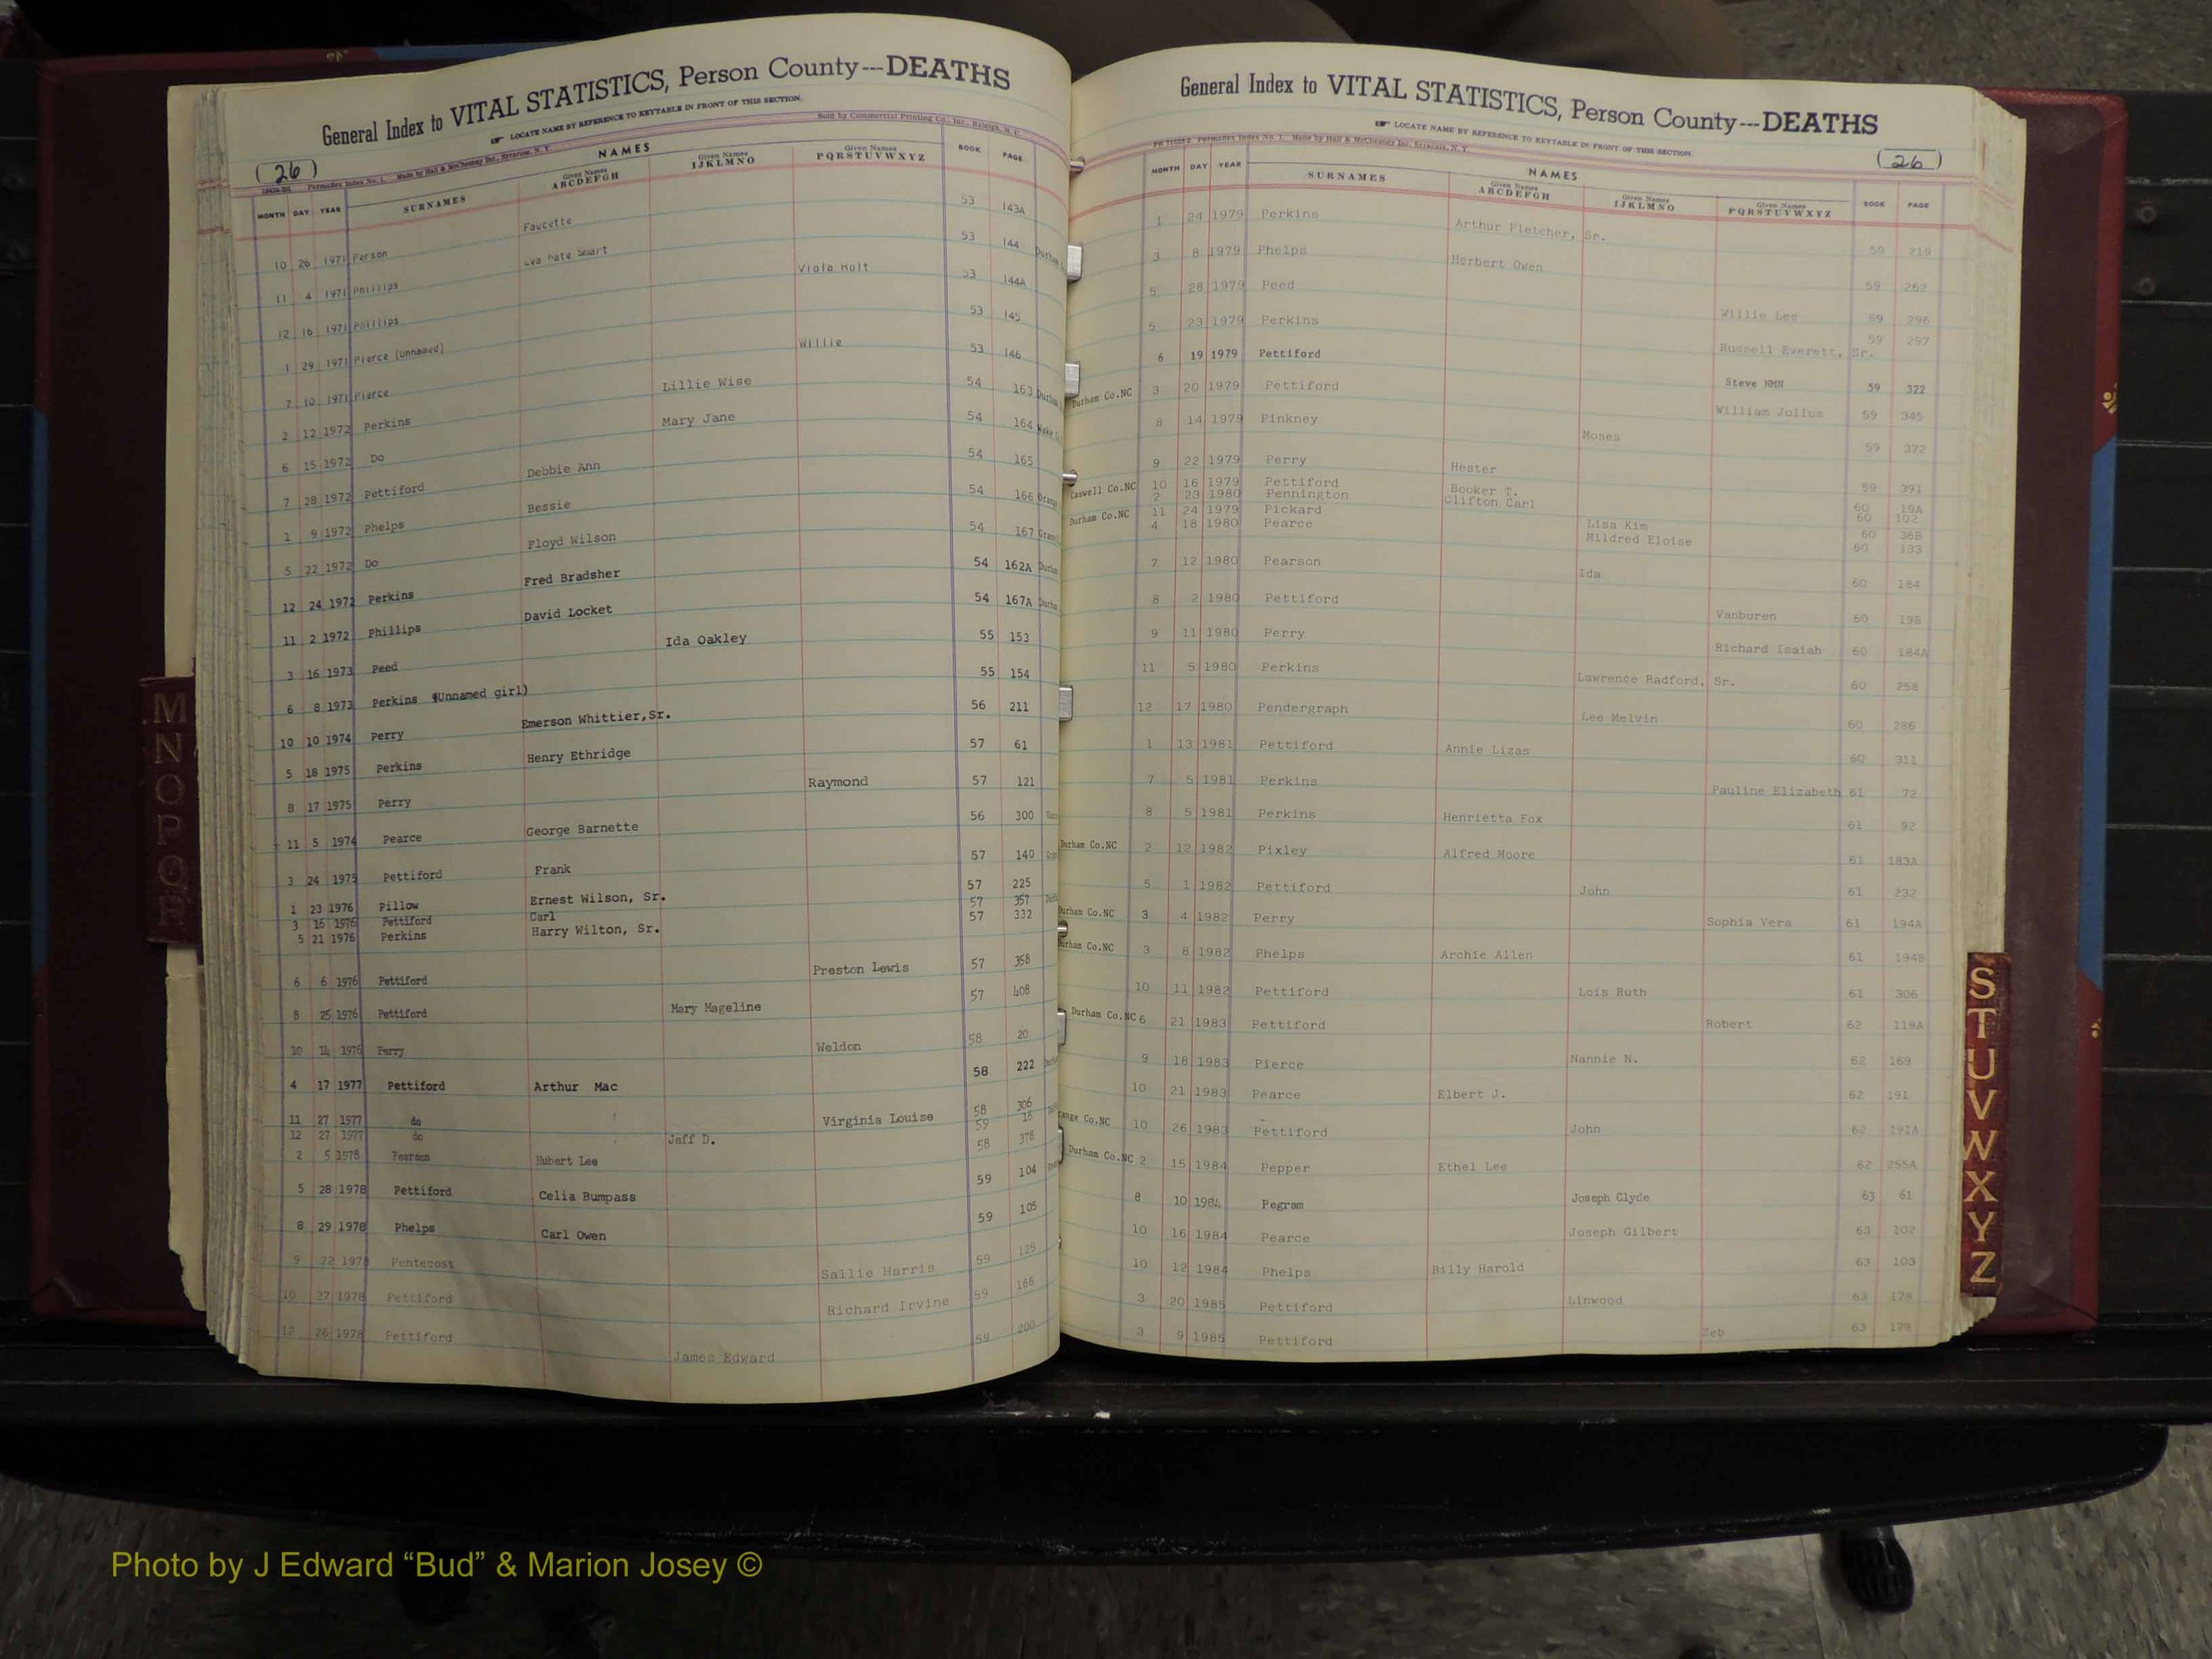 General Index to VITAL STATISTICS, Person County---DEATHS
LOCATE NAME BY REFERENCE TO KEYTABLE IN FRONT OF THIS SECTION.
Sold by Commercial Printing Co., Inc., Raleigh, N. C.
(26)
Permadex Index No. 1. Made by Hall & McChesney Inc., Syracuse, N. Y.
NAMES
MONTH DAY YEAR SURNAMES Given Names ABCDEFGH Given Names IJKLMNO Given Names PQRSTUVWXYZ BOOK PAGE
10 26 1971 Person Faucette 53 143A
11 4 1971 Phillips Eva Kate Smart 53 144 Durham
12 16 1971 Phillips Viola Holt 53 144A
1 29 1971 Pierce (Unnamed) 53 145
7 10 1971 Pierce Willie 53 146
2 12 1972 Perkins Lillie Wise 54 163 Durham
6 15 1972 Do Mary Jane 54 164 Wake
7 28 1972 Pettiford Debbie Ann 54 165
1 9 1972 Phelps Bessie 54 166 Orange
5 22 1972 Do Floyd Wilson 54 167
12 24 1972 Perkins Fred Bradsher 54 162A Durham
11 2 1972 Phillips David Locket 54 167A Durham
3 16 1973 Peed Ida Oakley 55 153
6 8 1973 Perkins (Unnamed girl) 55 154
10 10 1974 Perry Emerson Whittier,Sr. 56 211
5 18 1975 Perkins Henry Ethridge 57 61
8 17 1975 Perry Raymond 57 121
11 5 1974 Pearce George Barnette 56 300
3 24 1975 Pettiford Frank 57 140
1 23 1976 Pillow Ernest Wilson, Sr. 57 225
3 16 1976 Pettiford Carl 57 357
5 21 1976 Perkins Harry Wilton, Sr. 57 332
6 6 1976 Pettiford Preston Lewis 57 358
8 25 1976 Pettiford Mary Mageline 57 408
10 14 1976 Perry Weldon 58 20
4 17 1977 Pettiford Arthur Mac 58 222
11 27 1977 do Virginia Louise 58 306
12 27 1977 do Jeff D. 59 16
2 5 1978 Pearson Hubert Lee 58 378
5 28 1978 Pettiford Celia Bumpass 59 104
8 29 1978 Phelps Carl Owen 59 105
9 22 1978 Pentecost Sallie Harris 59 125
10 27 1978 Pettiford Richard Irvine 59 166
12 26 1978 Pettiford James Edward 59 200
General Index to VITAL STATISTICS, Person County---DEATHS
LOCATE NAME BY REFERENCE TO KEYTABLE IN FRONT OF THIS SECTION.
Permadex Index No. 1. Made by Hall & McChesney Inc., Syracuse, N. Y.
(26)
NAMES
MONTH DAY YEAR SURNAMES Given Names ABCDEFGH Given Names IJKLMNO Given Names PQRSTUVWXYZ BOOK PAGE
1 24 1979 Perkins Arthur Fletcher, Sr. 59 219
3 8 1979 Phelps Herbert Owen 59 262
5 28 1979 Peed Willie Lee 59 296
5 23 1979 Perkins Russell Everett, Sr. 59 297
6 19 1979 Pettiford Steve NMN 59 322
Durham Co.NC 3 20 1979 Pettiford William Julius 59 345
8 14 1979 Pinkney Moses 59 372
9 22 1979 Perry Hester 59 391
Caswell Co.NC 10 16 1979 Pettiford Booker T. 60 19A
2 23 1980 Pennington Clifton Carl 60 102
Durham Co.NC 11 24 1979 Pickard Lisa Kim 60 36B
4 18 1980 Pearce Mildred Eloise 60 133
7 12 1980 Pearson Ida 60 184
8 2 1980 Pettiford Vanburen 60 198
9 11 1980 Perry Richard Isaiah 60 184A
11 5 1980 Perkins Lawrence Radford, Sr. 60 258
12 17 1980 Pendergraph Lee Melvin 60 286
1 13 1981 Pettiford Annie Lizas 60 311
7 5 1981 Perkins Pauline Elizabeth 61 72
8 5 1981 Perkins Henrietta Fox 61 92
Durham Co.NC 2 12 1982 Pixley Alfred Moore 61 183A
5 1 1982 Pettiford John 61 232
Durham Co.NC 3 4 1982 Perry Sophia Vera 61 194A
Durham Co.NC 3 8 1982 Phelps Archie Allen 61 194B
10 11 1982 Pettiford Lois Ruth 61 306
Durham Co.NC 6 21 1983 Pettiford Robert 62 119A
9 18 1983 Pierce Nannie N. 62 169
10 21 1983 Pearce Elbert J. 62 191
ange Co.NC 10 26 1983 Pettiford John 62 191A
Durham Co.NC 2 15 1984 Pepper Ethel Lee 62 255A
8 10 1984 Pegram Joseph Clyde 63 61
10 16 1984 Pearce Joseph Gilbert 63 102
10 12 1984 Phelps Billy Harold 63 103
3 20 1985 Pettiford Linwood 63 178
3 9 1985 Pettiford Zeb 63 179
M
N
O
P
Q
R
S
T
U
V
W
X
Y
Z
Photo by J Edward “Bud” & Marion Josey ©